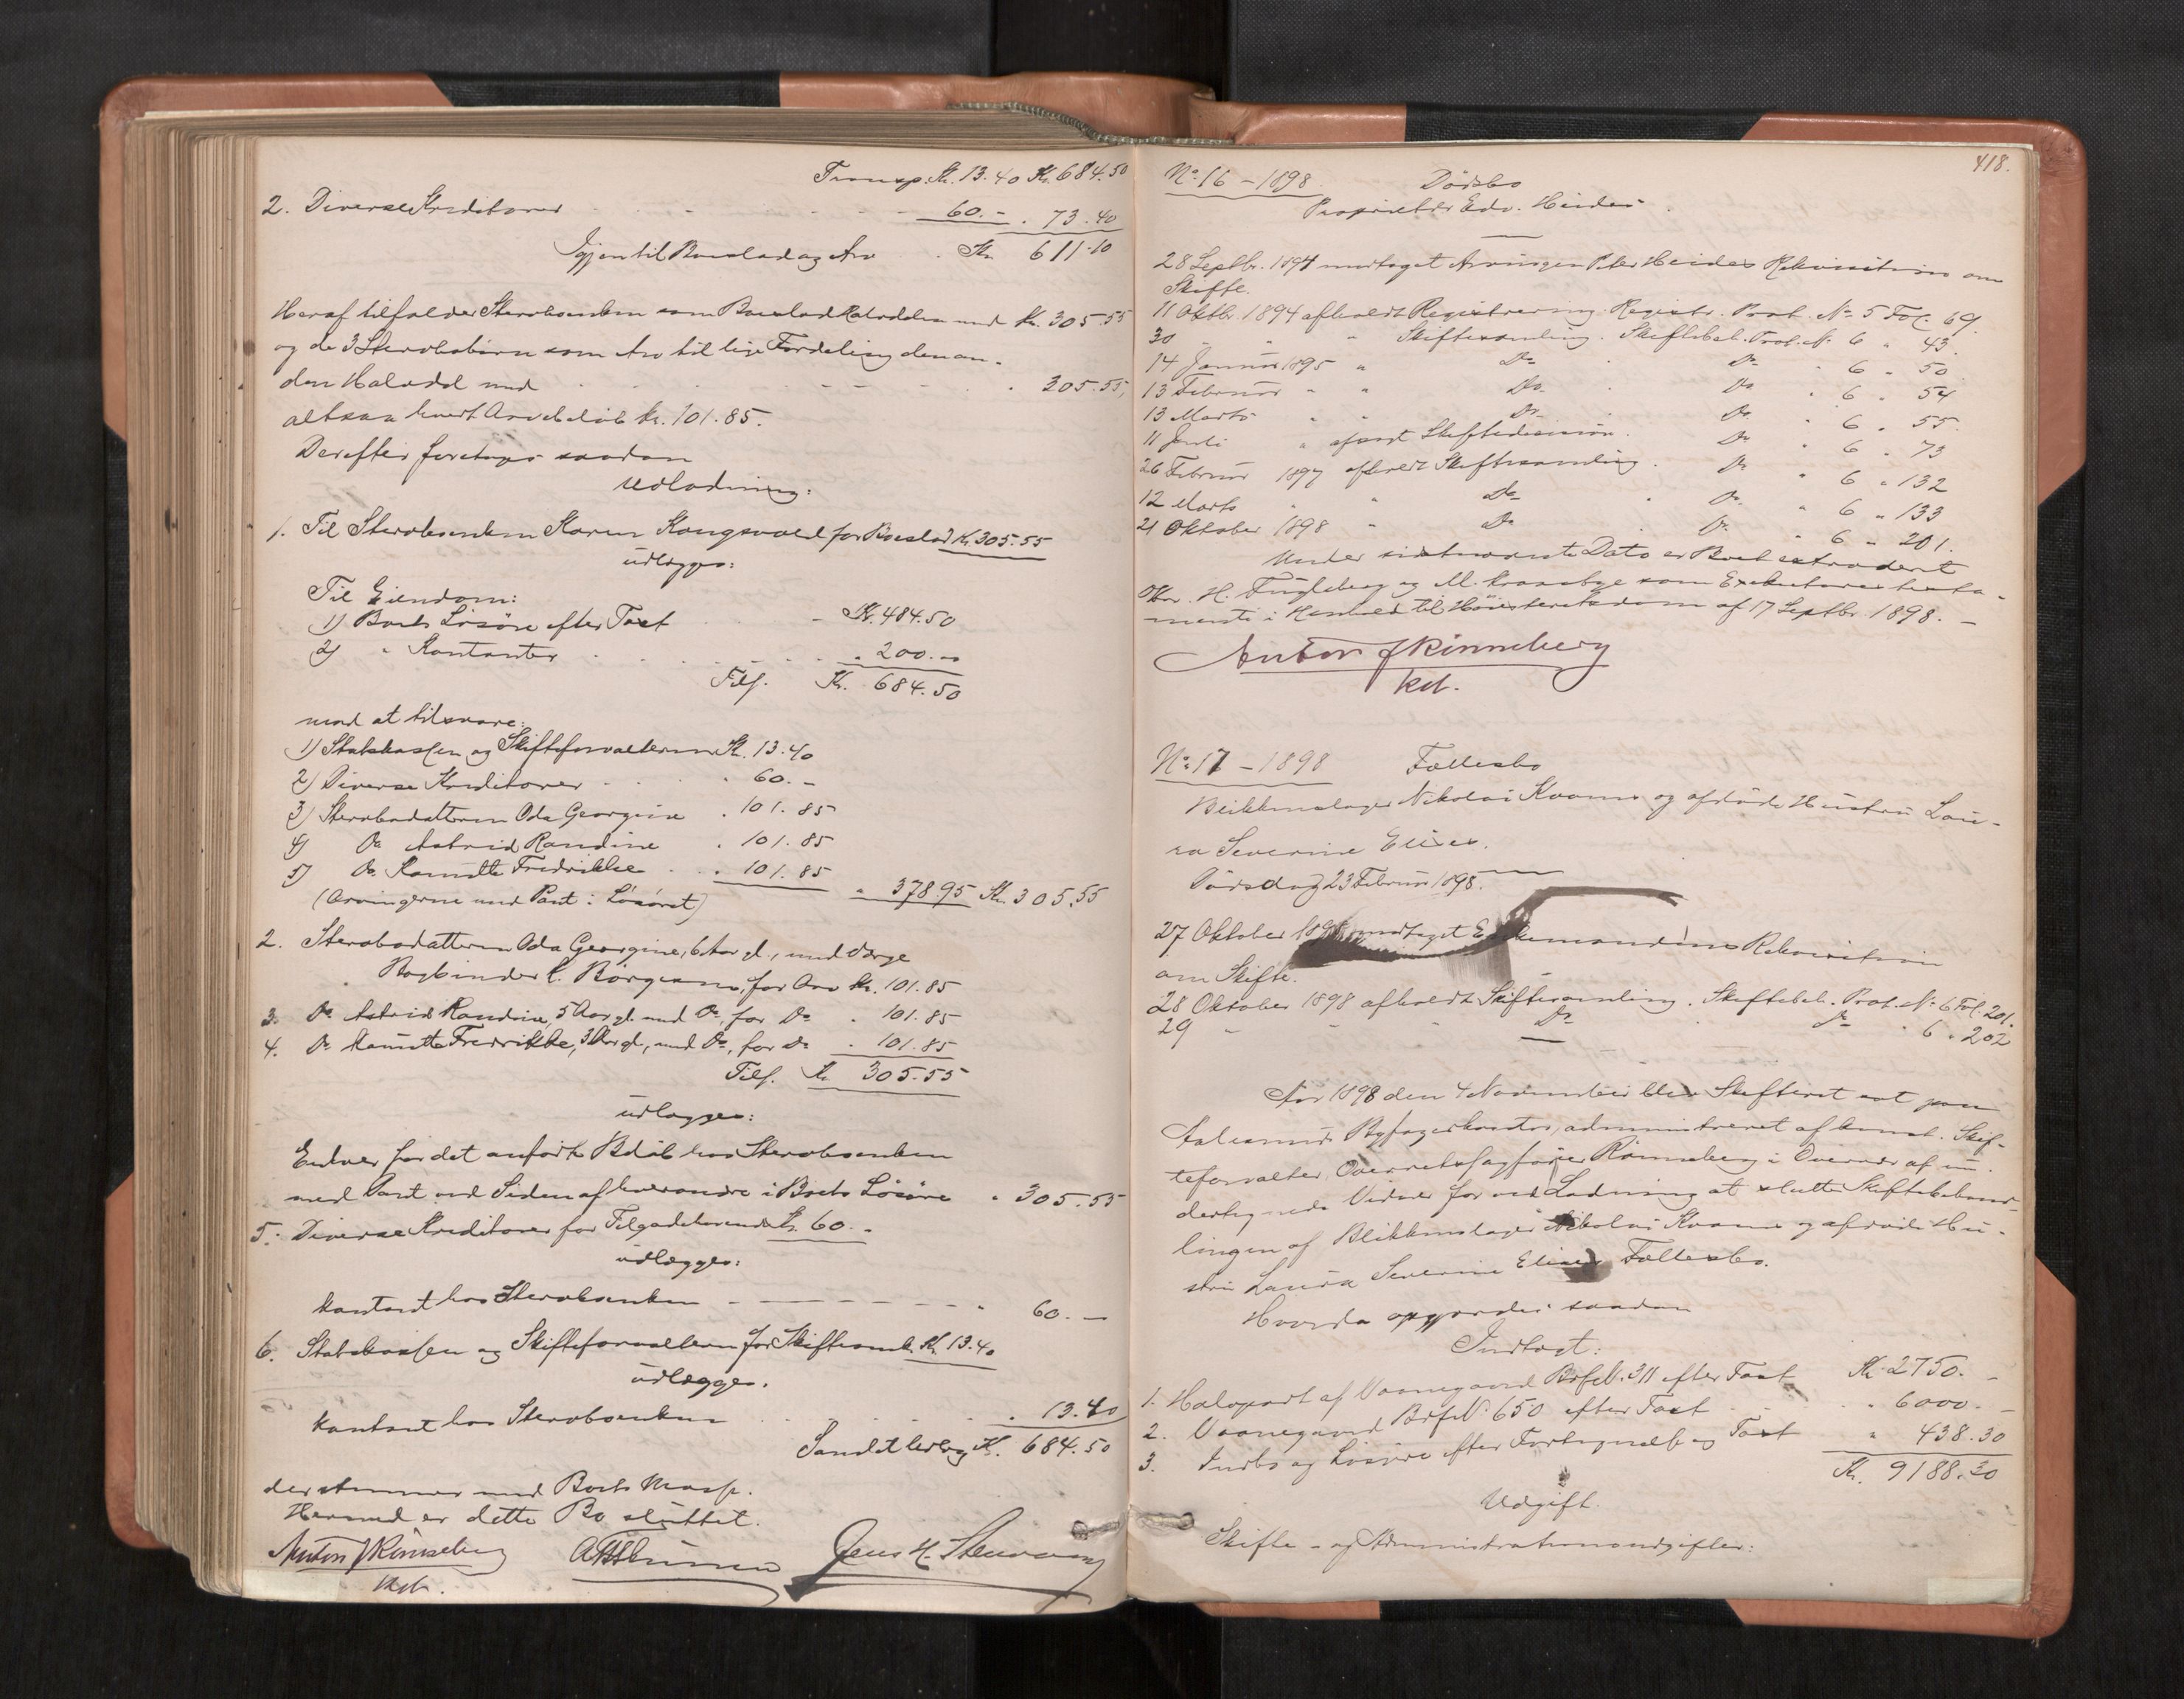 Transp. Kr. 13.40 Kr. 684.50
2. Diverse Kreditorer 60.- . 73.40
Igjen til Boeslod og Arv Kr. 611.10
Heraf tilfalder Sterboenken som Boeslod Halvdelen med Kr. 305.55
og de 3 Sterbobørn som Arv til lige Fordeling den an-
den Halvdel med . 305.55,
altsaa hvert Arvebeløb kr. 101.85.
Derefter foretages saadan
Udlodning:
1. Til Sterboenken Karen Kongsvold for Boeslod Kr. 305.55
udlægges:
Til Eiendom:
1) Boets Løsøre efter Taxt Kr. 484.50
2) " Kontanter . 200.-
Tils. Kr. 684.50
mod at tilsvare:
1) Statskassen og Skifteforvalteren Kr. 13.40
2) Diverse Kreditorer " 60.-
3) Sterbodatteren Oda Georgine . 101.85
4) Do Astrid Randine . 101.85
5) Do Fredrikke . 101.85 " 378.95 Kr. 305.55
(Arvingerne med Pant i Løsøret)
2. Sterbodatteren Oda Georgine, 6 Aar gl., med Værge
Bogbinder C. Børgesen, for Arv Kr. 101.85
3. Do Astrid Randine, 5 Aar gl. med Do, for Do . 101.85
4. Do Fredrikke, 3 Aar gl., med Do, for Do . 101.85
Tils. Kr. 305.55
udlægges:
Enhver for det anførte Beløb hos Sterboenken
med Pant ved Siden af hverandre i Boets Løsøre " 305.55
5. Diverse Kreditorer for Tilgodehavende Kr. 60.-
udlægges:
kontant hos Sterboenken " 60.-
6. Statskassen og Skifteforvalteren for Skifteomk. Kr. 13.40
udlægges.
kontant hos Sterboenken . 13.40
Samlet Udlæg Kr. 684.50
der stemmer med Boets Masse.
Hermed er dette Bo sluttet.
Anton J Rønneberg
kst.
Jens H.
418.
No 16 - 1898. Dødsbo
Proprietær Edv. Heides.
28 Septbr. 1894 modtaget Arvingen Peter Heides Rekvisition om
Skifte.
11 Oktbr. 1894 afholdt Registrering. Registr. Prot. No 5 Fol. 69.
30 " " " Skiftesamling. Skiftebeh. Prot. No 6 " 43.
14 Januar 1895 " Do Do " 6 " 50.
13 Februar " " Do Do " 6 " 54
13 Marts " " Do Do " 6 " 55.
11 Juli " afsagt Skiftedecision. Do " 6 " 73
26 Februar 1897 afholdt Skiftesamling. Do " 6 " 132
12 Marts " " Do Do " 6 " 133
21 Oktober 1898 " Do Do " 6 " 201.
Under sidstnævnte Dato er Boet extraderet
H. Fugleberg og M. som Exekutores testa-
menti i Henhold til Høiesteretsdom af 17 Septbr. 1898. -
Anton J Rønneberg
kst.
No 17 - 1898 Fællesbo
Blikkenslager Nikolai Kvams og afdøde Hustru Lau-
ra Severine Elises.
Dødsdag 23 Februar 1898.
27 Oktober 1898 modtaget Enkemandens Rekvisition
om Skifte.
28 Oktober 1898 afholdt Skiftesamling. Skiftebeh. Prot. No 6 Fol. 201.
29 " " " Do Do " 6 " 202
Aar 1898 den 4 November blev Skifteret sat paa
Aalesunds Byfogedkontor, administreret af konst. Skif-
teforvalter Overretssagfører Rønneberg i Overvær af un-
dertegnede Vidner for ved Lodning at slutte Skiftebehand-
lingen af Blikkenslager Nikolai Kvams og afdøde Hu-
stru Laura Severine Elises Fællesbo.
Hvorda opgjordes saadan
Indtægt:
1. Halvpart af Vaanegaard Brfc. No 311 efter Taxt Kr. 2750.-
2. Vaanegaard Brfc. No 650 efter Taxt " 6000.-
3. Indbo og Løsøre efter Fortegnelse og Taxt " 438.30
Kr. 9188.30
Udgift.
Skifte- og Administrationsudgifter: